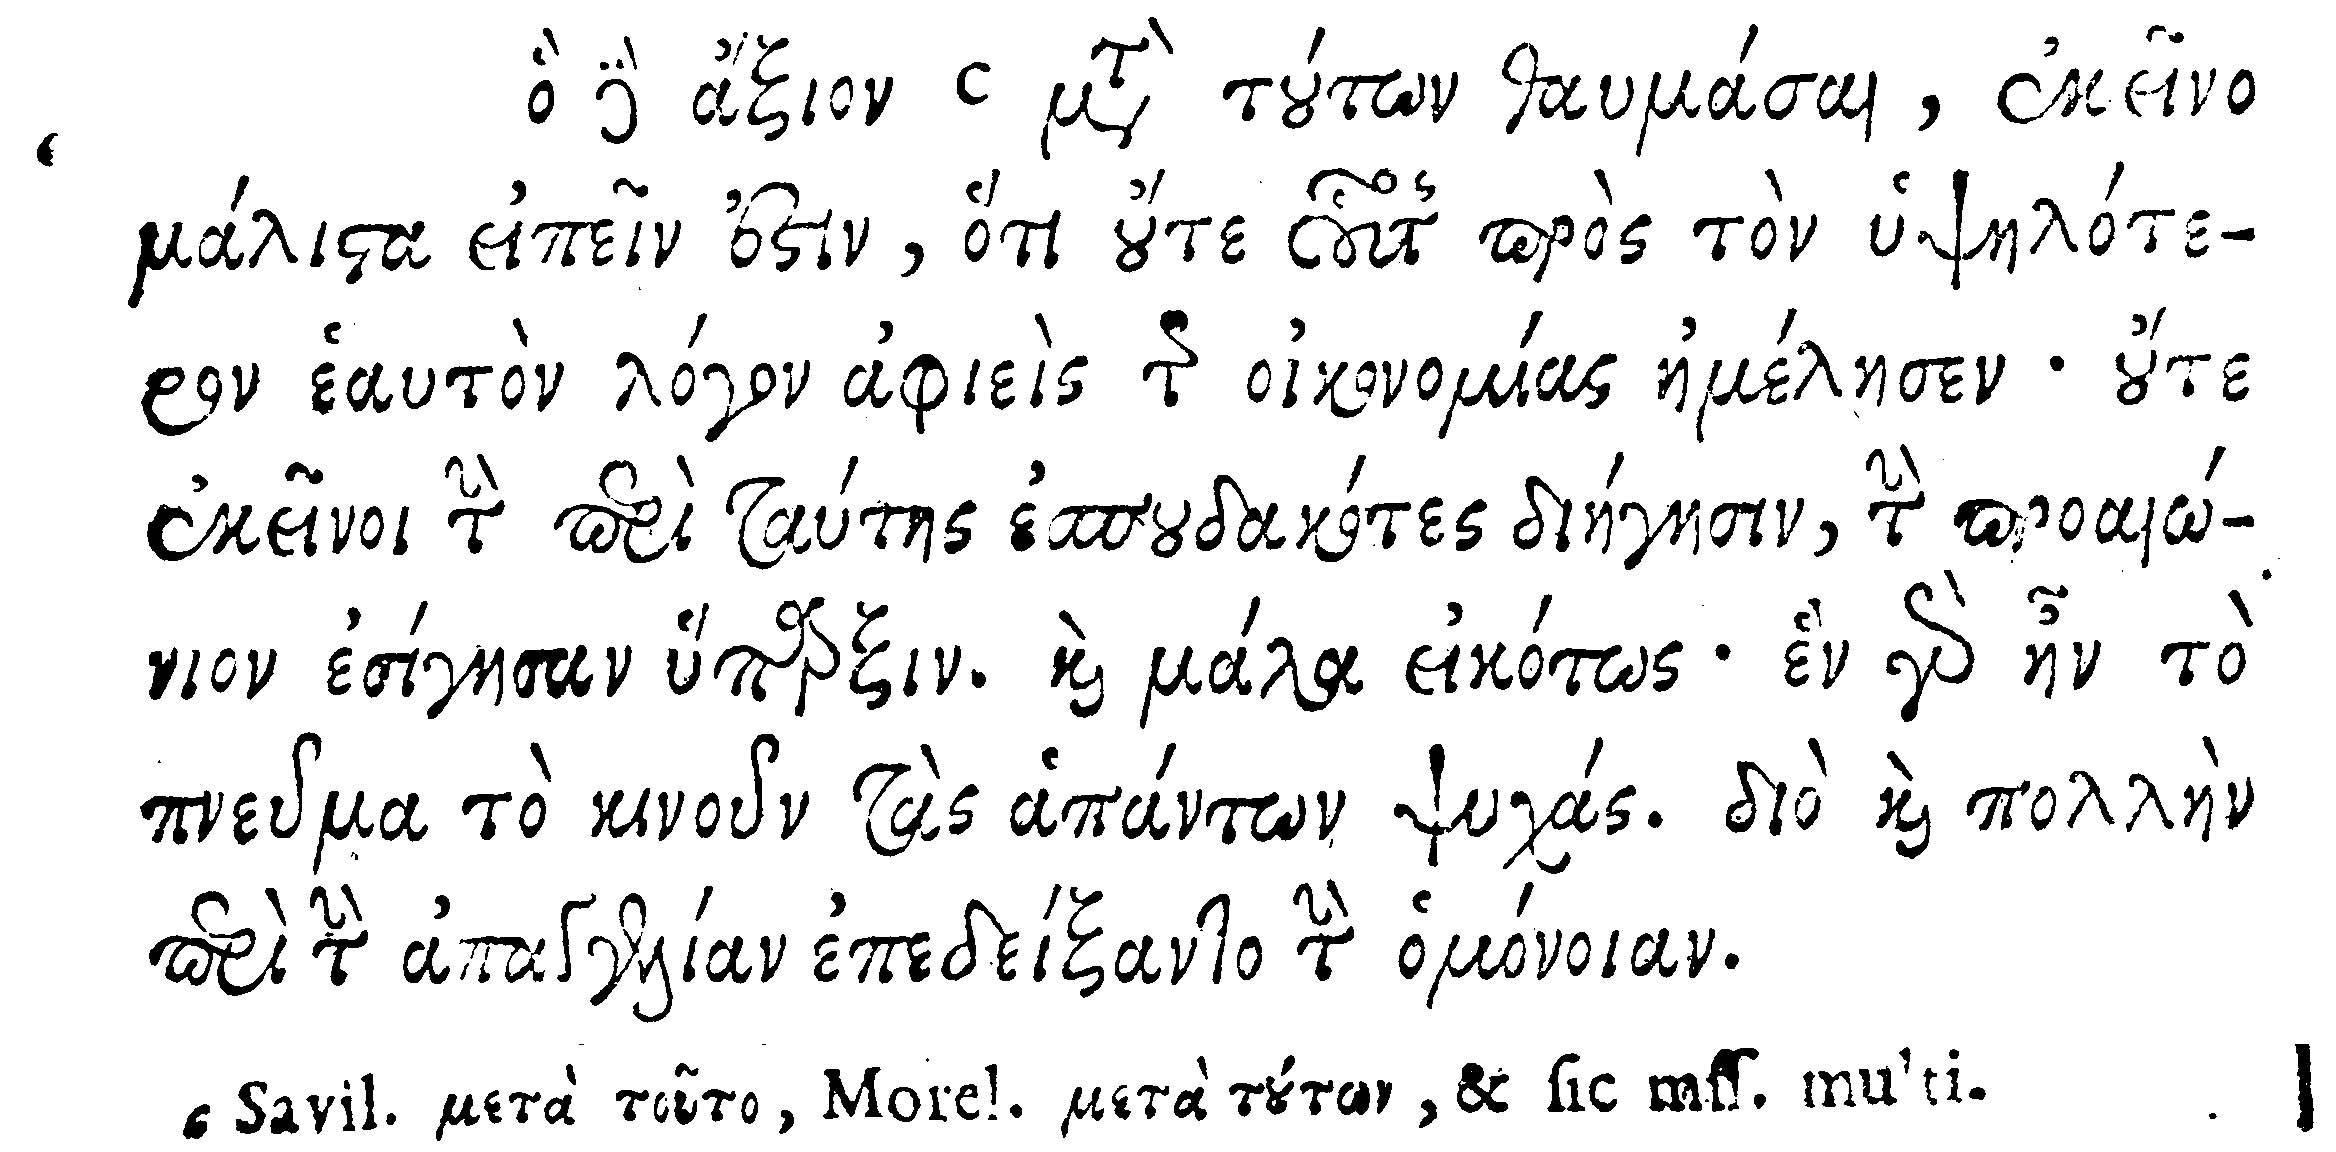 ὃ δὲ ἄξιον c μετὰ τούτων θαυμάσαι, ἐκεῖνο
μάλιστα εἰπεῖν ἐστιν, ὅτι οὔτε οὗτος πρὸς τὸν ὑψηλότε-
ρον ἑαυτὸν λόγον ἀφιεὶς τῆς οἰκονομίας ἠμέλησεν· οὔτε
ἐκεῖνοι τὴν περὶ ταύτης ἐσπουδακότες διήγησιν, τὴν προαιώ-
νιον ἐσίγησαν ὕπαρξιν. καὶ μάλα εἰκότως· ἓν γὰρ ἦν τὸ
πνεῦμα τὸ κινοῦν τὰς ἁπάντων ψυχάς. διὸ καὶ πολλὴν
περὶ τὴν ἀπαγγελίαν ἐπεδείξαντο τὴν ὁμόνοιαν.
c Savil. μετὰ τοῦτο, Morel. μετὰ τούτων, & sic mss. multi.